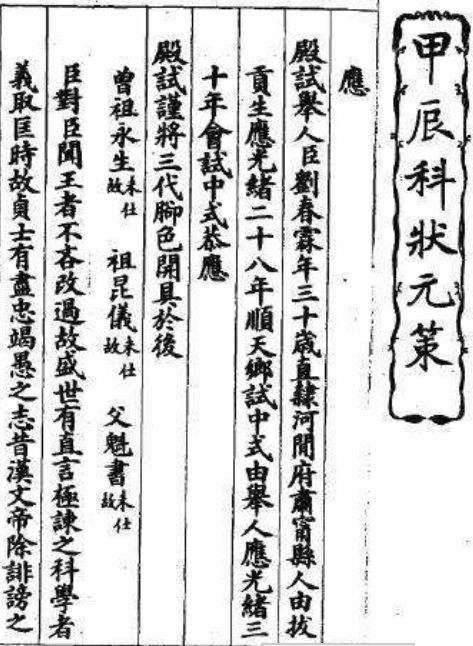 甲辰科狀元策
應
殿試舉人臣劉春霖年三十歲直隸河間府肅甯縣人由拔
貢生應光緒二十八年順天鄉試中式由舉人應光緒三
十年會試中式恭應
殿試謹將三代腳色開具於後
曾祖永生未仕故 祖昆儀未仕故 父魁書未仕故
臣對臣聞王者不吝改過故盛世有直言極諫之科學者
義取匡時故貞士有盡忠竭愚之志昔漢文帝除誹謗之